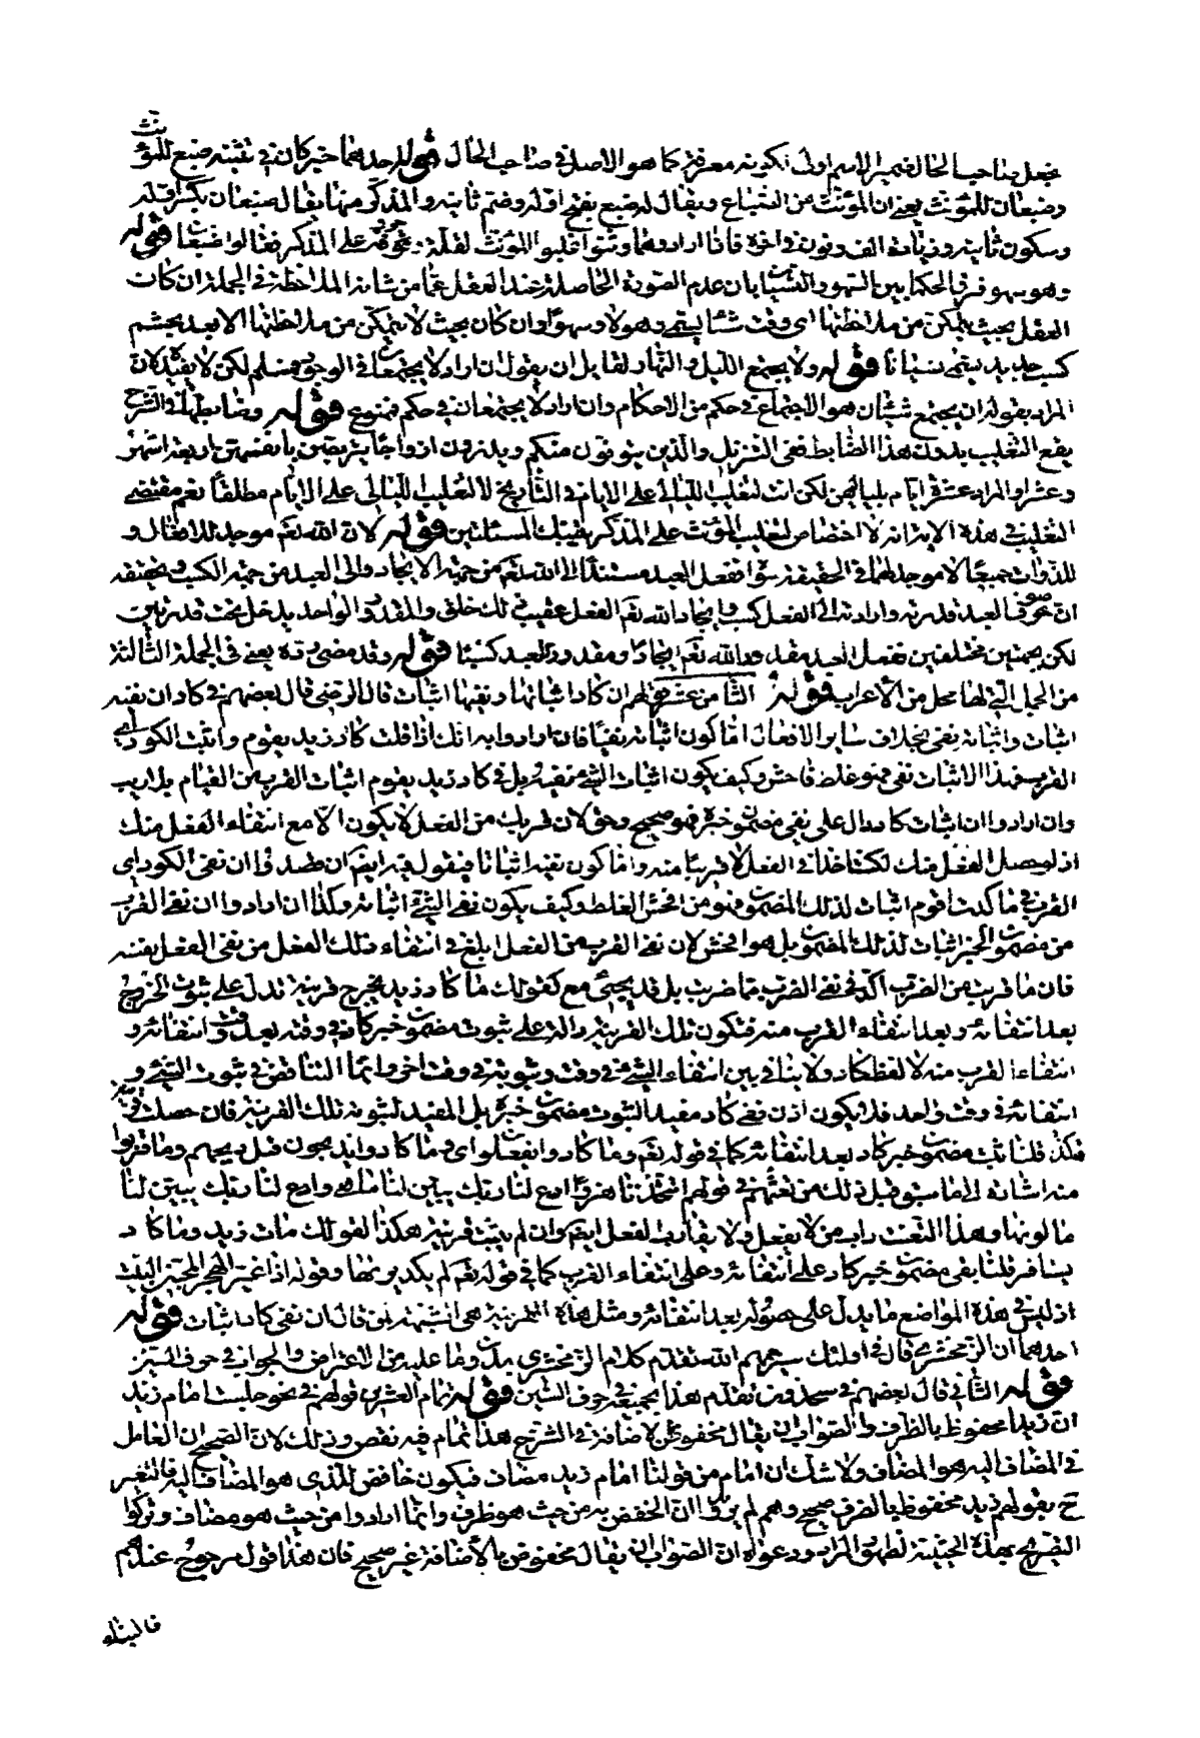 فجعل صاحب الحال ضمير الاسم اولى لكونه معرفة كما هو الاصل في صاحب الحال قوله احدهما خير كان في تثنية ضبع للمؤنث
وضبعان للمؤنث يعني ان المؤنث من الضباع ويقال له ضبع بفتح اوله وضم ثانيه والمذكر منها يقال ضبعان بكسر اوله
وسكون ثانيه وزيادة الف ونون في اخره فاذا ارادوهما وثنوا غلبوا المؤنث لقلة حروفه على المذكر فقالوا ضبعان قوله
وهو سهو فرق الحكما بين السهو والنسيان بان عدم الصورة الحاصلة عند العقل عما من شانه الملاحظة في الجملة ان كان
العقل بحيث يتمكن من ملاحظتها اى وقت شاء يسمى ذهولا وسهوا وان كان بحيث لا يتمكن من ملاحظتها الا بعد تجشم
كسب جديد يسمى نسيانا قوله ولا يجتمع الليل والنهار لقايل ان يقول ان اراد لا يجتمعان في الوجود فمسلم لكن لا يفيده لان
المراد بقوله ان يجتمع شيئان هو الاجتماع في حكم من الاحكام وان اراد لا يجتمعان في حكم فممنوع قوله وضابطهما في الشرح
يقع التغليب بدون هذا الضابط ففي التنزيل والذين يتوفون منكم ويذرون ازواجا يتربصن بانفسهن اربعة اشهر
وعشرا والمراد عشرة ايام بلياليهن لكن انت لتغليب الليالي على الايام في التاريخ لا لتغليب الليالى على الايام مطلقا نعم مقتضى
التغليب في هذه الاية انه لا اختصاص لتغليب المؤنث على المذكر بتينك المسئلتين قوله لان الله تعم موجد للافعال و
للذوات جميعا لا موجد لهما في الحقيقة سواه ففعل العبد مستند الى الله تعم من جهة الايجاد والى العبد من جهة الكسب وتحقيقه
ان صرف العبد قدرته وارادته الى الفعل كسب وايجاد الله تعم الفعل عقيب ذلك خلق والمقدور الواحد يدخل تحت قدرتين
لكن بجهتين مختلفتين ففعل العبد مقدور الله تعم ايجادا ومقدور العبد كسبا قوله وقد مضى رده يعني في الجملة الثالثة
من الجمل التي لها محل من الاعراب قوله الثامن عشر قولهم ان كاد اثباتها نفي ونفيها اثبات قال الرضي قال بعضهم في كاد ان نفيه
اثبات واثباته نفي بخلاف ساير الافعال اما كون اثباته نفيا فان ارادوا به انك اذا قلت كاد زيد يقوم واثبت الكود اى
القرب فهذا الاثبات نفي فهو غلط فاحش وكيف يكون اثبات الشئ نفيه بل في كاد زيد يقوم اثبات القرب من القيام بلا ريب
وان ارادوا ان اثبات كاد دال على نفي مضمون خبره فهو صحيح وحق لان قربك من الفعل لا يكون الا مع انتفاء الفعل منك
اذ لو حصل الفعل منك لكنت اخذا في الفعل لا قريبا منه واما كون نفيه اثباتا فنقول فيه ايضا ان قصدوا ان نفي الكود اى
القرب في ما كدت اقوم اثبات لذلك المضمون فهو من افحش الغلط وكيف يكون نفي الشئ اثباته وكذا ان ارادوا ان نفي القرب
من مضمون الخبر اثبات لذلك المضمون بل هو افحش لان نفي القرب من الفعل ابلغ في انتفاء ذلك الفعل من نفي الفعل نفسه
فان ما قربت من الضرب اكد في نفي الضرب مما ضربت بل قد يجئ مع كقولك ما كاد زيد يخرج قرينة تدل على ثبوت الخروج
بعد انتفائه وبعد انتفاء القرب منه فتكون تلك القرينة دالة على ثبوت مضمون خبر كاد في وقته بعد وقت انتفائه و
انتفاء القرب منه لا لفظ كاد ولا تنافي بين انتفاء الشئ في وقت وثبوته في وقت اخر وانما التناقض في ثبوت الشئ و
انتفائه في وقت واحد فلا يكون اذن نفي كاد مفيد الثبوت مضمون خبره بل المفيد لثبوته تلك القرينة فان حصلت قرينة
هكذا قلنا ثبت مضمون خبر كاد بعد انتفائه كما في قوله تعم وما كادوا يفعلون اى وما كادوا يذبحون قبل ذبحهم وما قربوا
منه اشارة الى ما سبق قبل ذلك من تعنتهم في قولهم اتتخذنا هزوا ادع لنا ربك يبين لنا ما هي وادع لنا ربك يبين لنا
ما لونها وهذا التعنت داب من لا يفعل ولا يقارب الفعل ايضا وان لم يثبت قرينة هكذا كقولك مات زيد وما كاد
يسافر قلنا بقي مضمون خبر كاد على انتفائه وعلى انتفاء القرب كما في قوله تعم لم يكد يريها وقوله اذا غير الهجر المحبين البيت
اذ ليس في هذه المواضع ما يدل على حصوله بعد انتفائه ومثل هذه القرينة هي شبهة من قال ان نفي كاد اثبات قوله
احدهما ان الزمخشرى قال في اولئك سيرحمهم الله تقدم كلام الزمخشري وما عليه من الاعتراض والجواب في حرف السين
قوله الثاني قال بعضهم في سجد وف تقدم هذا بجميعه في حرف السين قوله تمام العشرين قولهم في نحو جلست امام زيد
ان زيدا مخفوظ بالظرف والصواب ان يقال مخفوض بالاضافة في الشرح هذا تمام فيه نقص وذلك لان الصحيح ان العامل
في المضاف اليه هو المضاف ولا شك ان امام من قولنا امام زيد مضاف فيكون خافض للذى هو المضاف اليه فالتعبير
ح بقولهم زيد مخفوظ بالظرف صحيح وهم لم يريدوا ان الخفض به من حيث هو ظرف وانما ارادوا من حيث هو مضاف وتركوا
التصريح بهذه الحيثية لظهور المراد ودعواه ان الصواب ان يقال مخفوض بالاضافة غير صحيح فان هذا قول مرجوح عندهم